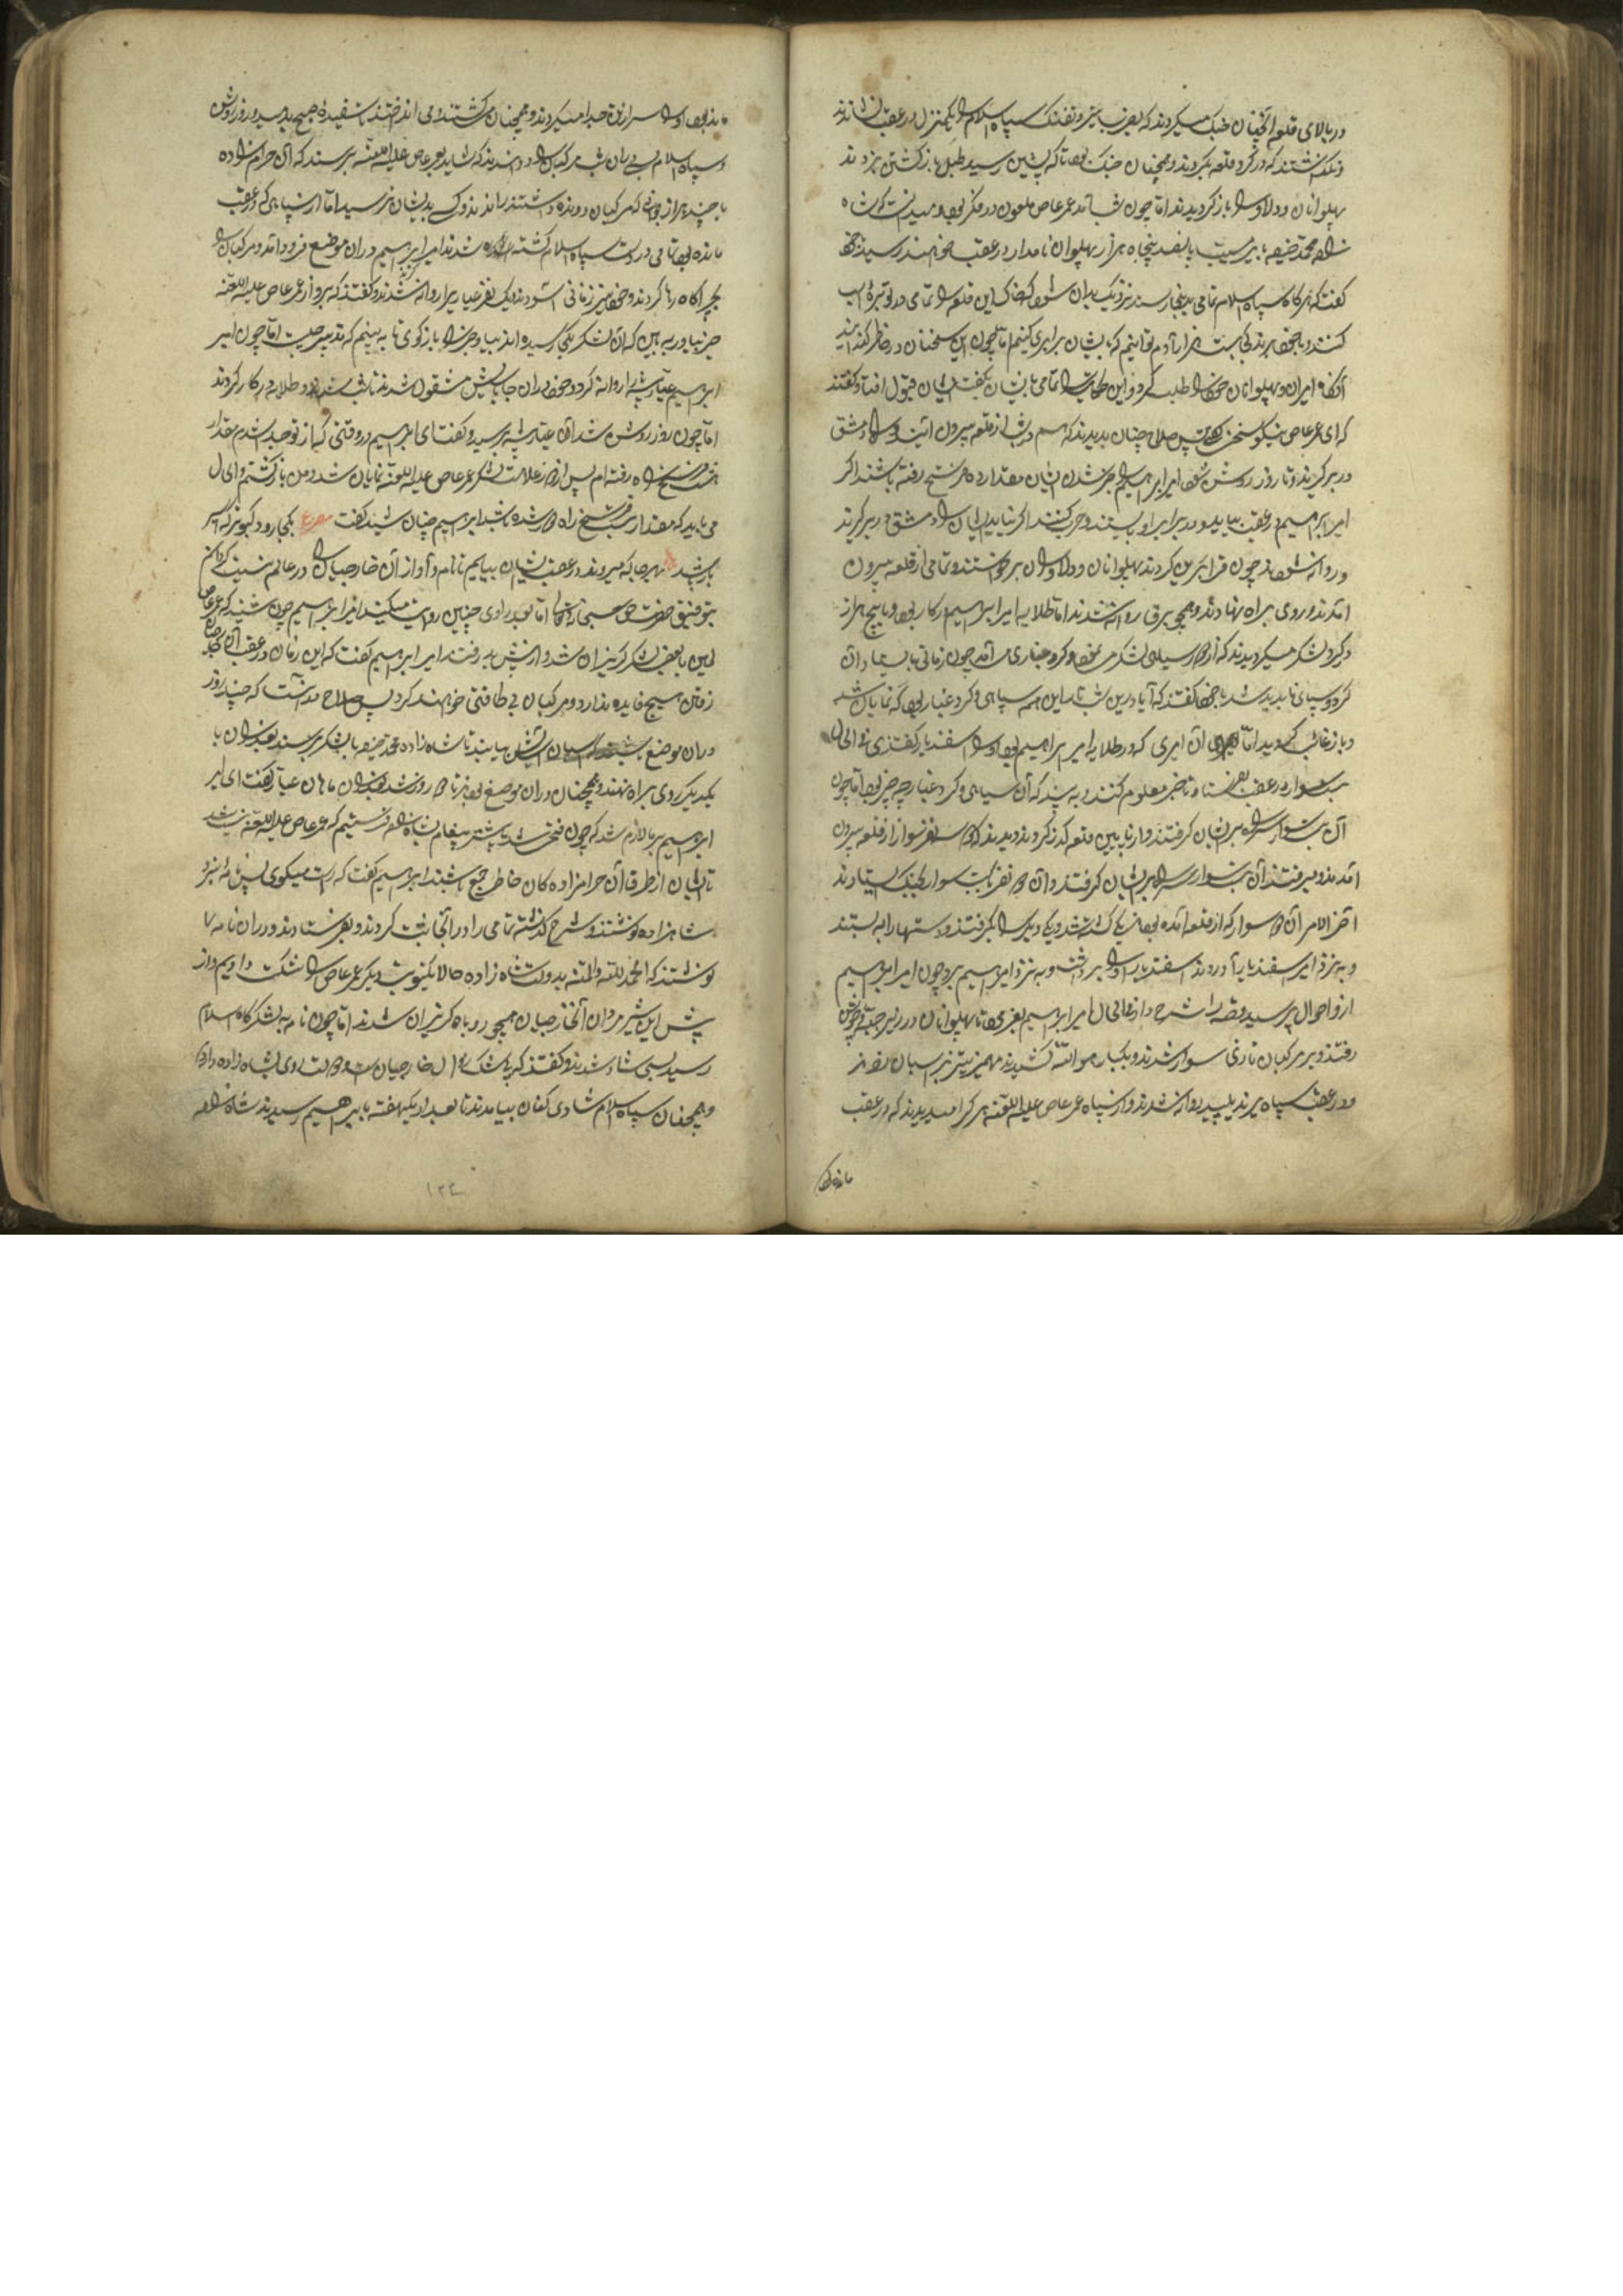 در بالای قلعه آنچنان جنگ میکردند که بضرب تیر و تفنگ سپاه اسلام را یکمنزل در عقب نشاندند
و نگذاشتند که در گرد قلعه بگردند و همچنان جنگ بود تا که پشین رسید طبل بازگشتن بزدند
پهلوانان و دلاوران بازگردیدند اما چون شب آمد عمرعاص ملعون در فکر بود و میدانست که شاه
زاده محمد حنیفه با پانصد پنجاه هزار پهلوان نامدار در عقب خواهند رسید
گفت که هرگاه سپاه اسلام تمامی بدینجا رسند نزدیک بدان شود که خاک این قلعه را تمامی در توبره اسب
کنند و با خود برند بیست هزار آدم توانیم که بایشان برابری کنیم اما چون این سخنان در خاطر گذرانید
آنگاه امیران و پهلوانان خود را طلب کرد و این حکایت را تمامی بایشان بگفت ایشان قبول افتاد و گفتند
که ای عمرعاص نیکو سخن گفتی پس صلاح چنان بدیدند که هم در شب از قلعه بیرون آیند و راه دمشق
در بر گیرند و تا روز روشن شود امیر ابراهیم را خبر شدن ایشان مقدار ده فرسخ رفته باشند اگر
امیر ابراهیم در عقب بیاید در برابر او بایستند و حرب کنند اگر نیاید ایشان راه دمشق در بر گیرند
و روانه شوند چون قرار برین کردند پهلوانان و دلاوران برخواستند و تمامی از قلعه بیرون
آمدند و روی براه نهادند و همچو برق روانه شدند اما طلایه امیر ابراهیم در کار بود و با پنج هزار
در گرد لشکر میگردیدند که از دور سیاهی لشکر می نمود و گرد و غباری می آمد چون زمانی بایستاد آن
گرد و سیاهی ناپدید شد با خود گفتند که آیا درین شب تار این همه سپاهی و گرد و غبار بود که نمایان شد
و باز غائب گردید اما آن امیری که در طلایه امیر ابراهیم بود او را اسفندیار گفتندی فی الحال
سوار در عقب بفرستاد تا خبر معلوم کنند و به بینند که آن سیاهی و گرد و غبار چه چیز بود اما چون
آن سوار سر راه بر ایشان گرفتند و از پایین قلعه گذر کردند دیدند که دو نفر سوار از قلعه بیرون
آمدند و میرفتند آن سواران سر راه بر ایشان گرفتند و آن دو نفر با بیست سوار بجنگ ایستادند
آخر الامر آن دو سوار که از قلعه آمده بودند یکی کشته شد و یکی دیگر را بگرفتند و دستها را به بستند
و به نزد امیر اسفندیار آوردند اسفندیار او را برداشت و به نزد ابراهیم برد چون امیر ابراهیم
از و احوال پرسید قصه را شرح داد فی الحال امیر ابراهیم بفرمود تا پهلوانان در زیر جبه و جوشن
رفتند و بر مرکبان تازی سوار شدند و یکبار هو الله کشیدند مهمیز تیز بر اسبان زدند
و در عقب سپاه یزید پلید روانه شدند و از سپاه عمرعاص علیه اللعنه هر کرا میدیدند که در عقب
مانده بود
مانده بود او را سر از تن جدا میکردند و همچنان میکشتند و می انداختند تا سفیده صبح بدمید و روز روشن شد
و سپاه اسلام بی پایان شب مرکبان را دوانیدند که شاید بعمرعاص علیه اللعنه برسند که آن حرامزاده
با چند هزار جوانی که مرکبان دونده داشتند راندند و کسی بدیشان نرسید اما از سپاهی که در عقب
مانده بود تمامی در دست سپاه اسلام کشته شدند امیر ابراهیم در آن موضع فرود آمد و مرکبان را
بچراگاه رها کردند و خود نیز زمانی آسودند و یک نفر عیار را روانه کردند و گفتند که برو از عمرعاص علیه اللعنه
خبر بیاور به بین که آن لشکر بکی رسید و باز بیا و خبر را بازگوی تا به بینم که تدبیر چیست اما چون امیر
ابراهیم عتبان پشه را روانه کرد و خود در آن جا بعیش مشغول شدند تا شب شد و طلایه در کار کردند
اما چون روز روشن شد آن عیار پشه برسید و گفت ای ابراهیم در وقتی که از تو جدا شدم مقدار
هشت فرسخ راه رفته ام پس از دور علامت لشکر عمرعاص علیه اللعنه نمایان شد و من بازگشتم و الحال
می باید که مقدار بیست فرسخ راه دور شده باشند ابراهیم چنان شنید گفت مصرع بکجا رود کبوتر که اسیر
باز باشد بهر جا که میروند در عقب ایشان بیایم تا نام و آواز آن خارجیان را در عالم نیست گردانم
بتوفیق حضرت حق سبحانه و تعالی اما راوی چنین روایت میکند امیر ابراهیم چون شنید که عمرعاص
لعین با بعضی لشکر گریزان شد و از پیش بدر رفت امیر ابراهیم گفت که این زمان در عقب آن خارجیان
رفتن هیچ فایده ندارد و مرکبان بی طاقتی خواهند کرد پس صلاح در آنست که چند روز
در آن موضع بیایند تا شاه زاده محمد حنیفه با لشکر برسند بعد از آن با
یکدیگر روی براه نهند و همچنان در آن موضع بودند تا دو روز شد بعد از آن ماهان عیار گفت ای امیر
ابراهیم بر ما لازم شد که چون فتح شد بایستی پیغام بشاه زاده فرستیم که عمرعاص علیه اللعنه نیست شد
تا ایشان از طرف آن حرامزاده گان خاطر جمع باشند ابراهیم گفت که راست میگوی پس نامه بنزد
شاهزاده نوشتند و شرح گذشته تمامی را در آنجا ثبت کردند و بفرستادند و در آن نامه
نوشتند که الحمد لله والمنه بدولت شاه زاده حالا یکنوبت دیگر عمرعاص را شکست دادیم و از
پیش این شیر مردان آنخارجیان همچو روباه گریزان شدند اما چون نامه به لشکرگاه اسلام
رسید بسی شاد شدند و گفتند که خارجیان و دولت روی بشاه زاده دارد
و همچنان سپاه اسلام شادی کنان بیامدند تا بعد از یکهفته بابراهیم رسیدند شاه زاده
۱۲۲